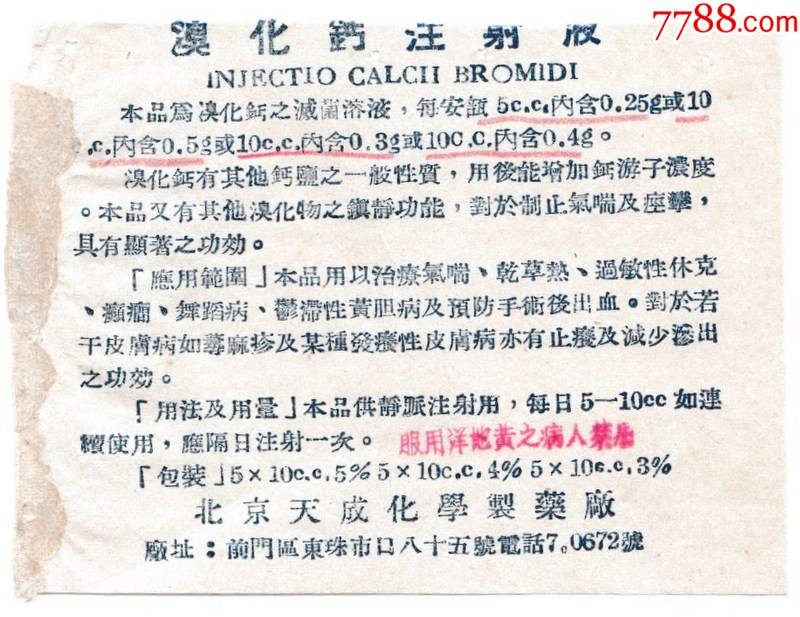 7788.com
溴化鈣注射液
INJECTIO CALCII BROMIDI
本品爲溴化鈣之滅菌溶液，每安瓿5c.c.內含0.25g或10
.c.內含0.5g或10c.c.內含0.3g或10C.C.內含0.4g。
溴化鈣有其他鈣鹽之一般性質，用後能增加鈣游子濃度
。本品又有其他溴化物之鎭靜功能，對於制止氣喘及痙攣，
具有顯著之功効。
「應用範圍」本品用以治療氣喘、乾草熱、過敏性休克
、癲癇、舞蹈病、鬱滯性黃胆病及預防手術後出血。對於若
干皮膚病如蕁麻疹及某種發癢性皮膚病亦有止癢及減少滲出
之功効。
「用法及用量」本品供靜脈注射用，每日5—10cc如連
續使用，應隔日注射一次。 服用洋地黃之病人禁用
「包裝」5×10c.c.5% 5×10c.c.4% 5×10c.c.3%
北京天成化學製藥廠
廠址：前門區東珠市口八十五號電話7。0672號